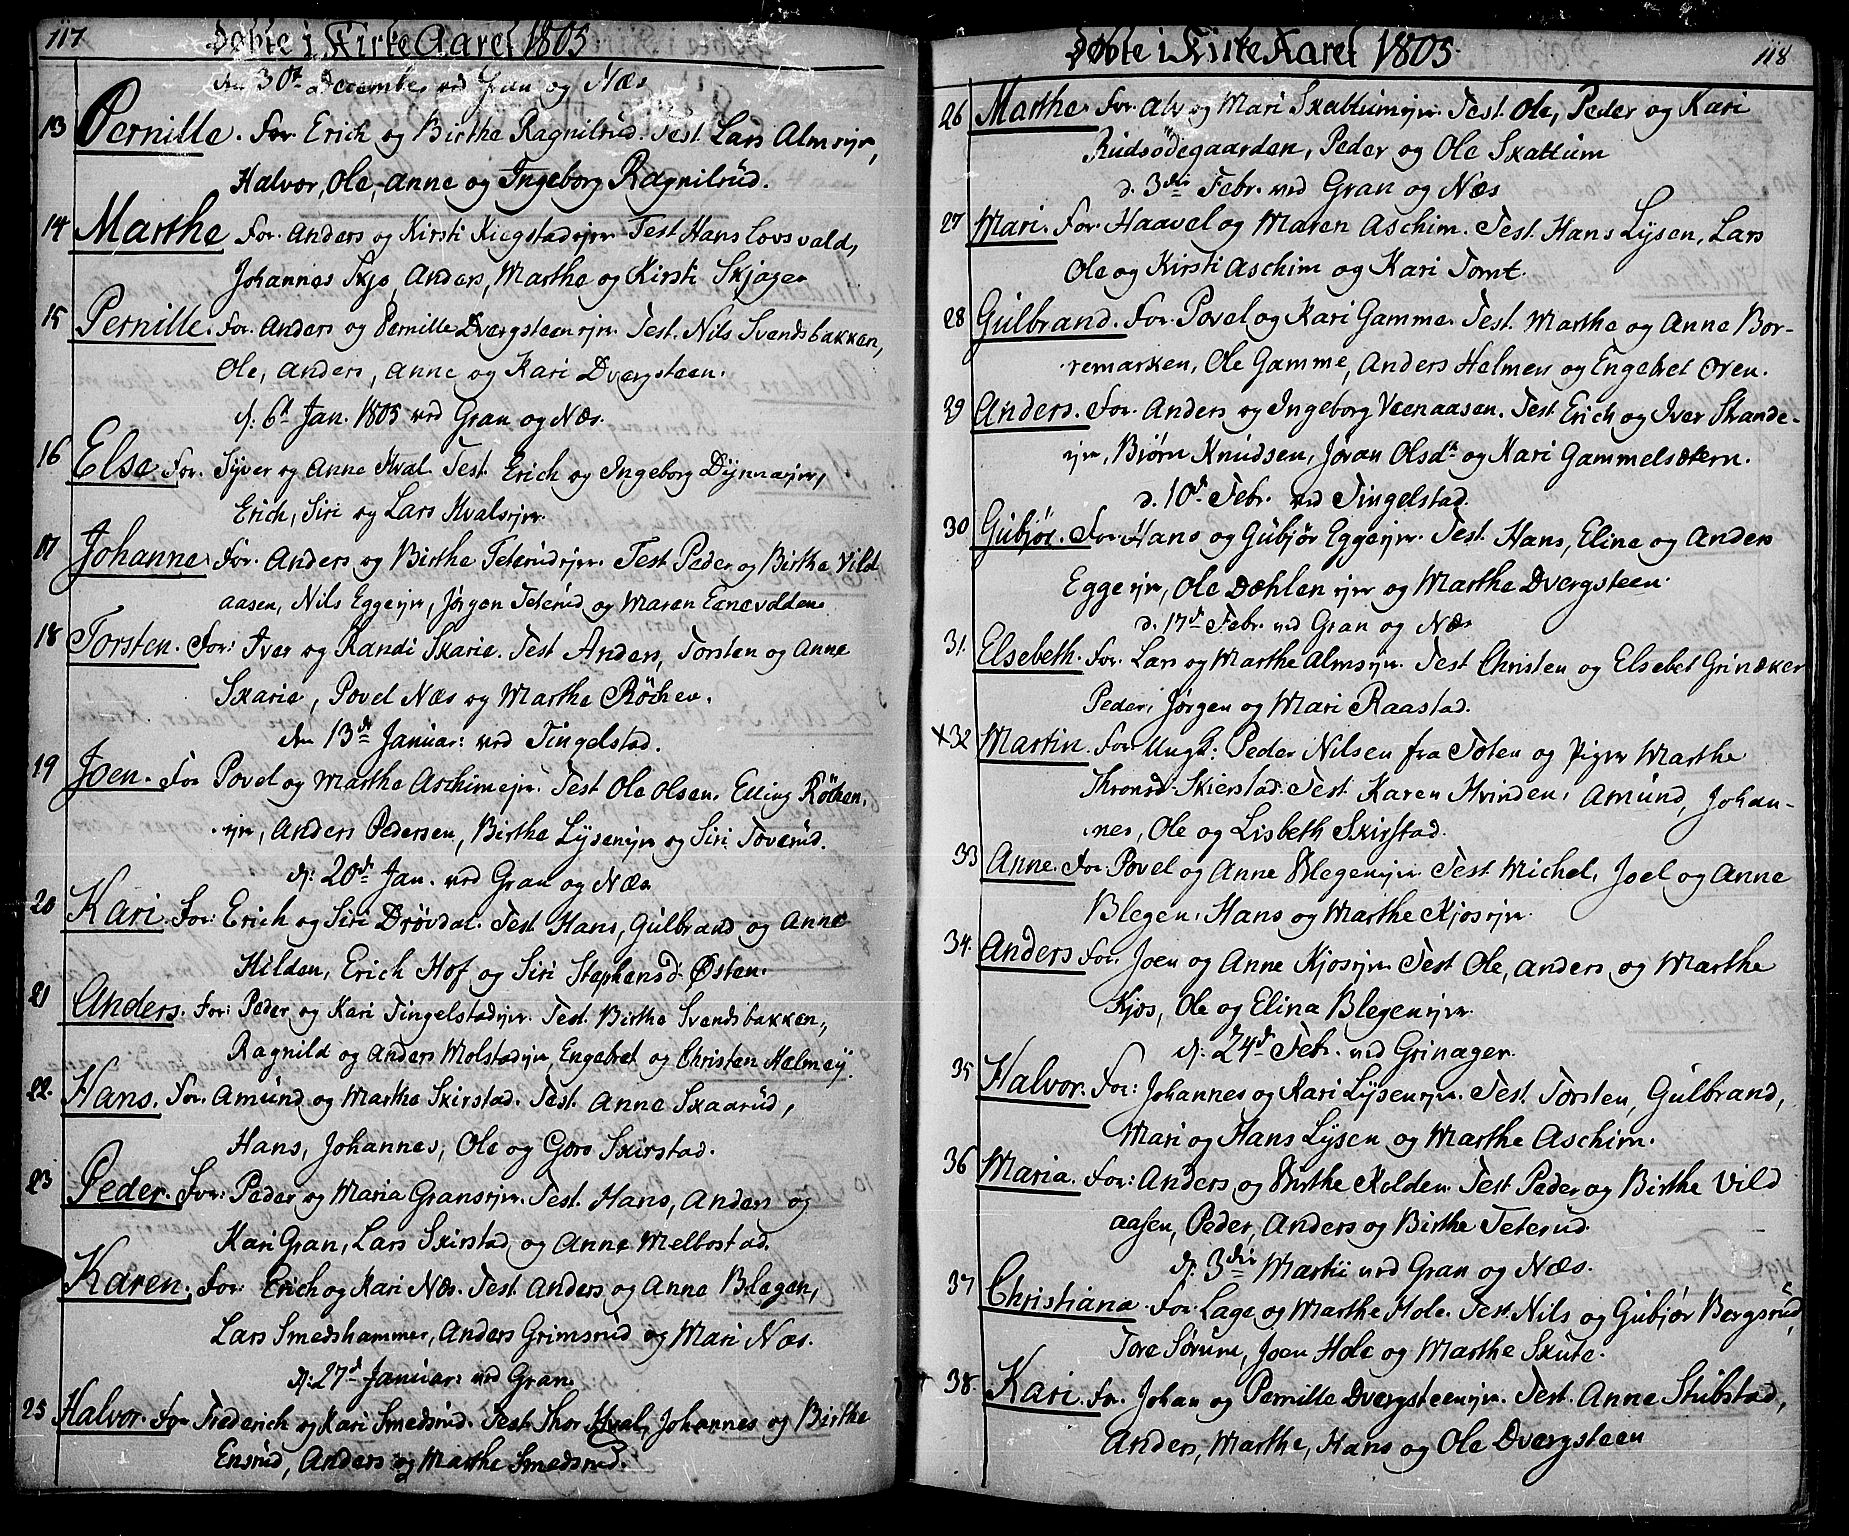 117
Døbte i Kirke Aaret 1805
den 30te Decembr ved Gran og Næs
13 Pernille. For. Erich og Birthe Ragnilrud. Test. Lars Almsejer,
Halvor, Ole, Anne og Ingeborg Ragnilrud.
14 Marthe For. Anders og Kirsti Kiegstadejer Test Hans Lovsvald,
Johannes Skjo, Anders, Marthe og Kirsti Skjager
15 Pernille. For. Anders og Pernille Dvergsteenejer. Test. Nils Svendsbakken,
Ole, Anders, Anne og Kari Dvergsteen.
d: 6t Jan. 1805 ved Gran og Næs.
16 Else For. Syver og Anne Hval. Test. Erich og Ingeborg Dynnaejer,
Erich, Siri og Lars Hvalsejer.
17 Johanne For. Anders og Birthe Teterudejer. Test Peder og Birthe Vild
aasen, Nils Eggeejer, Jørgen Teterud og Maren Enevolden.
18 Torsten. For: Iver og Randi Skarie. Test Anders, Torsten og Anne
Skarie, Povel Næs og Marthe Röchen.
den 13de Januar: ved Tingelstad.
19 Joen. For Povel og Marthe Aschimejer. Test Ole Olsen, Elling Röchen,
ejer, Anders Pedersen, Birthe Lysenejer og Siri Toverud.
d: 20d Jan. ved Gran og Næs
20 Kari. For: Erich og Siri Drøvdal. Test Hans, Gulbrand og Anne
Hilden, Erich Hof og Siri Stephensd: Østen.
21 Anders. For: Peder og Kari Tingelstadejer. Test. Birthe Svendsbakken,
Ragnild og Anders Molstadejer, Engebret og Christen Helmey.
22. Hans. For. Amund og Marthe Skirstad. Test. Anne Skaarud,
Hans, Johannes, Ole og Goro Skirstad.
23 Peder. For: Peder og Maria Gransejer. Test. Hans, Anders og
Kari Gran, Lars Skirstad og Anne Melbostad.
Karen. For: Erich og Kari Næs. Test Anders og Anne Blegen,
Lars Smedshammer, Anders Grimsrud og Mari Næs.
d: 27d Januar: ved Gran.
25 Halvor. For Frederich og Kari Smedsrud. Test. Thor Hval, Johannes og Birthe
Ensrud, Anders og Marthe Smedsrud.
Døbte i Kirke Aaret 1805. 118
26 Marthe. For. Alv og Mari Skattumejer. Test. Ole, Peder og Kari
Rudsødegaarden, Peder og Ole Skattum
d. 3die Febr. ved Gran og Næs
27 Mari. For. Haavel og Maren Aschim. Test. Hans Lysen, Lars
Ole og Kirsti Aschim og Kari Tomt.
28 Gulbrand. For. Povel og Kari Gamme. Test. Marthe og Anne Bor-
remarken, Ole Gamme, Anders Helmen og Engebret Oren.
29 Anders. For. Anders og Ingeborg Veenaasen. Test. Erich og Iver Strande-
ejer, Biørn Knudsen, Jøran Olsdtr og Kari Gammelsætern.
d. 10d Febr. ved Tingelstad.
30 Gubjør. For. Hans og Gubjør Eggeejer. Test. Hans, Eline og Anders
Eggeejer, Ole Dæhlenejer og Marthe Dvergsteen.
d. 17de Febr. ved Gran og Næs
31. Elsebeth. For. Lars og Marthe Almsejer. Test Christen og Elsebet Grinaker
Peder, Jørgen og Mari Raastad.
x32 Martin. For. Ungk: Peder Nilsen fra Toten og Piger Marthe
Thronsd: Skierstad. Test. Karen Hvinden, Amund, Johan-
nes, Ole og Lisbeth Skirstad.
33 Anne. For Povel og Anne Blegenejer. Test Michel, Joel og Anne
Blegen, Hans og Marthe Kjosejer.
34. Anders For. Joen og Anne Kjosejer. Test Ole, Anders og Marthe
Kjos, Ole og Elina Blegenejer.
d: 24d Febr. ved Grinager.
35 Halvor. For: Johannes og Kari Lysenejer. Test. Torsten, Gulbrand,
Mari og Hans Lysen og Marthe Aschim.
36 Maria. For: Anders og Birthe Kolden. Test Peder og Birthe Vild
aasen, Peder, Anders og Birthe Teterud.
d. 3die Martii ved Gran og Næs.
37 Christiane. For. Lage og Marthe Hole. Test. Nils og Gubjør Bergsrud,
Tore Sørum, Joen Hole og Marthe Skute.
38. Kari. For. Johan og Pernille Dvergsteenejer. Test. Anne Stubstad,
Anders, Marthe, Hans og Ole Dvergsteen